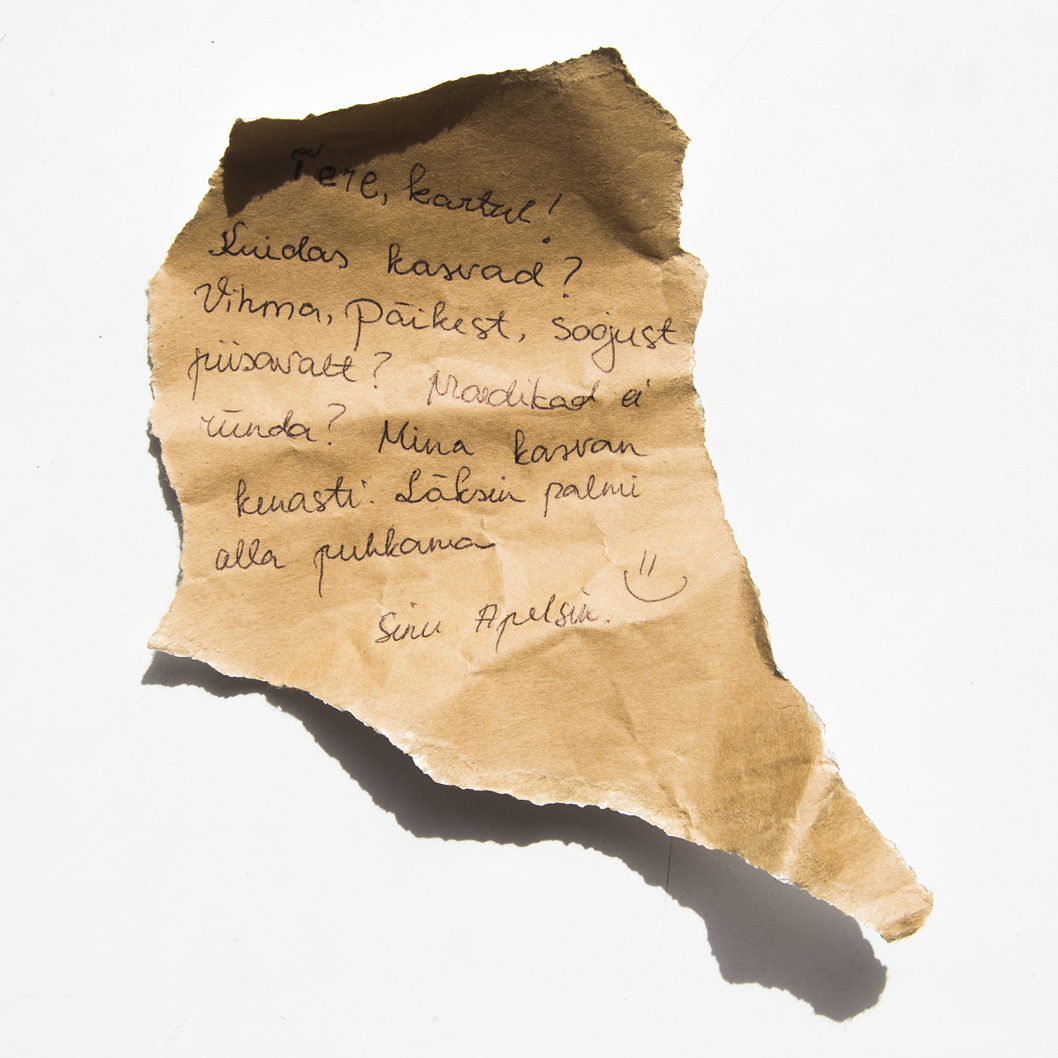 Tere, kartul!
Kuidas kasvad?
Vihma, päikest, soojust
piisavalt? Mardikad ei
ründa? Mina kasvan
kenasti. Läksin palmi
alla puhkama
Sinu Apelsin.